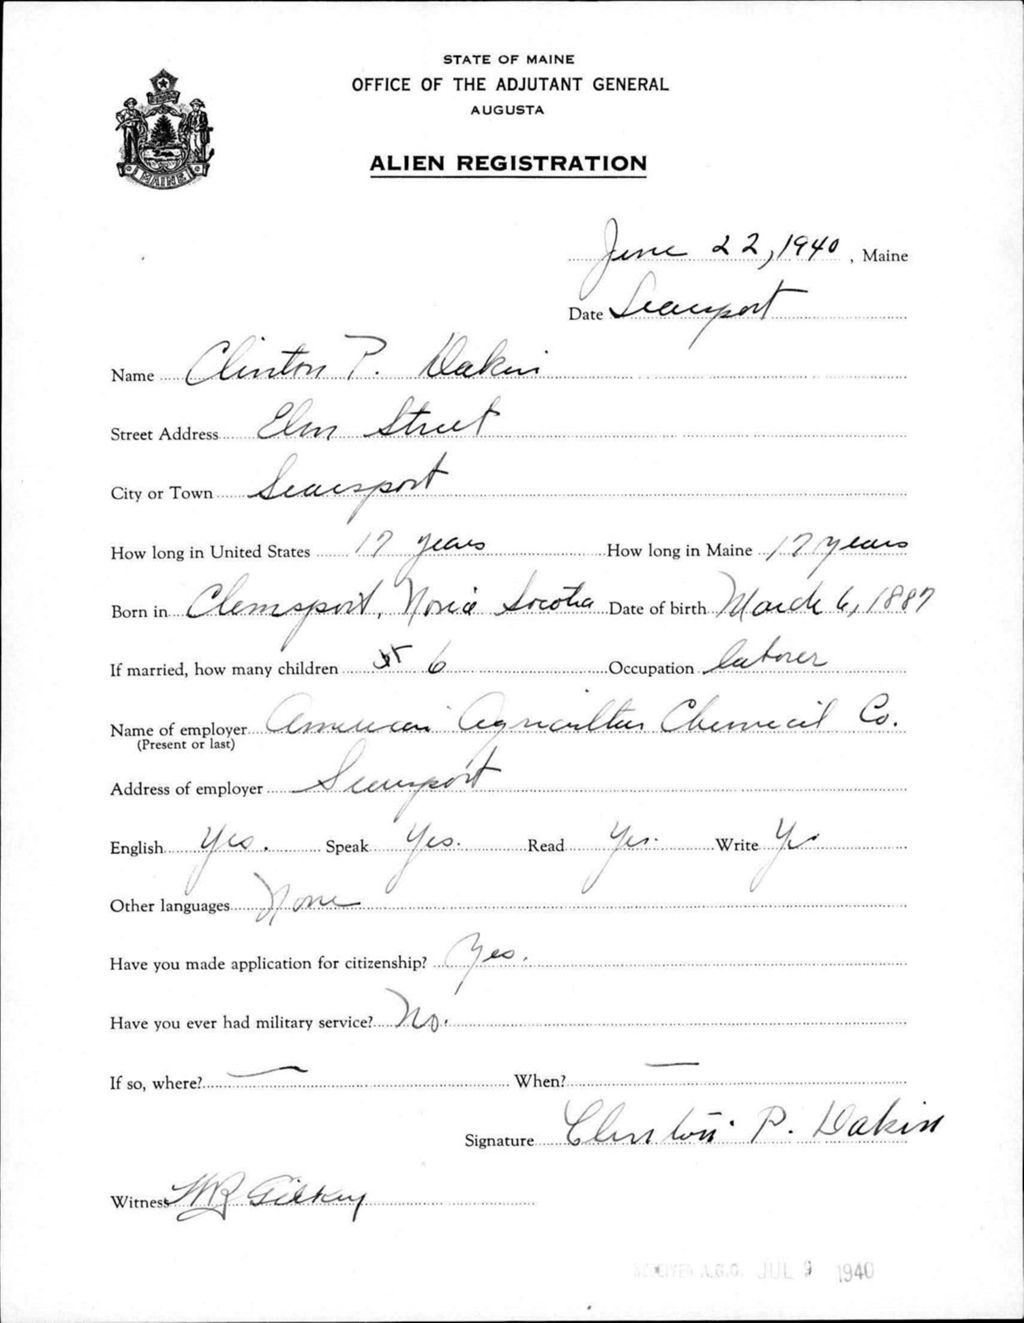 STATE OF MAINE
OFFICE OF THE ADJUTANT GENERAL
AUGUSTA
ALIEN REGISTRATION
MAINE
June 22, 1940, Maine
Date Searsport
Name Clinton P. Dakin
Street Address Elm Street
City or Town Searsport
How long in United States 17 years How long in Maine 17 years
Born in Clemsport, Novia Socotia Date of birth March 6, 1887
If married, how many children 6 Occupation laborer
Name of employer American Agricultur Chemecil Co.
(Present or last)
Address of employer Searsport
English Yes. Speak Yes. Read Yes. Write Yes
Other languages None
Have you made application for citizenship? Yes.
Have you ever had military service? No.
If so, where? — When? —
Signature Clinton P. Dakin
Witness WR Gilkey
A.G.O. JUL 9 1940